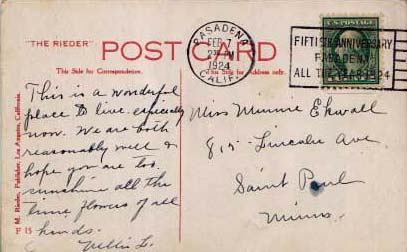 "THE RIEDER"
POST CARD
This Side for Correspondence.
This Side for Address only.
PASADENA
FEB 7
1924
CALIF.
FIFTIETH ANNIVERSARY
PASADENA
ALL THE YEAR 1924
U.S. POSTAGE
M. Rieder, Publisher, Los Angeles, California.
This is a wonderful
place to live, especially
now. We are both
reasonably well &
hope you are too.
sunshine all the
time flowers of all
kinds.
Nellie L.
Miss Minnie Ekwall
815 Lincoln Ave
Saint Paul
Minn.